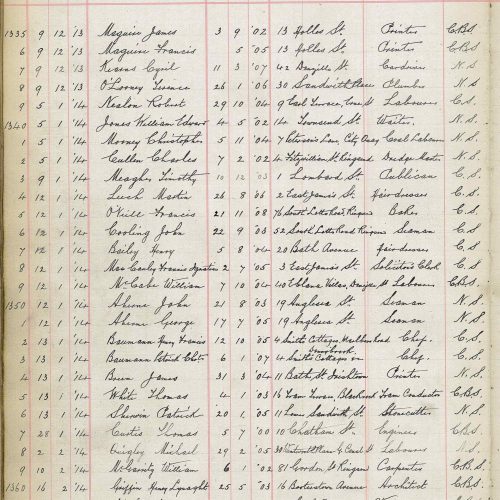 1335 9 12 '13 Maguire James 3 9 '02 13 Holles St. Printer C.B.S.
6 9 12 '13 Maguire Francis 5 '05 13 Holles St. Printer C.B.S.
7 9 12 '13 Cyril 11 3 '07 42 Denzille St. N.S.
8 9 12 '13 O'Looney Terence 26 1 '06 30 Sandwith Place Plumber N.S.
9 5 1 '14 Robert 29 10 '04 9 Terrace, St Labourer C.S.
1340 5 1 '14 Jones William Edward 4 5 '02 14 Townsend St. Waiter N.S.
1 5 1 '14 Mooney Christopher 5 11 '04 7 Lane City Quay Coal Labourer N.S.
2 5 1 '14 Cullen Charles 7 2 '02 4 Fitzwilliam St. Ringsend Dredge N.S.
3 9 1 '14 Meagher Timothy 10 12 '03 1 Lombard St. Publican C.S.
4 12 1 '14 Leech Martin 26 8 '05 2 East James St. Hairdresser C.S.
5 12 1 '14 O'Neill Francis 21 11 '08 76 South Lotts Road Ringsend Baker C.S.
6 12 1 '14 Cooling John 22 9 '03 52 South Lotts Road Ringsend Seaman C.S.
7 12 1 '14 Bailey Henry 5 8 '04 20 Bath Avenue Hairdresser C.S.
8 12 1 '14 MacCauley Francis Ignatius 2 7 '05 3 East James St. Solicitor's Clerk C.S.
9 12 1 '14 McCabe William 7 10 '04 40 Villas, Denzille St Labourer C.B.S.
1350 12 1 '14 Aherne John 21 8 '03 19 Anglesea St. Seaman N.S.
1 12 1 '14 Aherne George 17 7 '05 19 Anglesea St. Seaman N.S.
2 13 1 '14 Baumann Henry Francis 12 10 '05 4 Smith Cottages, Chef. C.S.
3 13 1 '14 Baumann Patrick 6 1 '07 4 Smith Cottages Chef. C.S.
4 13 1 '14 Breen James 31 3 '04 11 Bath St. Irishtown Printer N.S.
5 13 1 '14 White Thomas 4 '03 16 Terrace, Blackrock Tram Conductor C.B.S.
6 13 1 '14 Sherwin Patrick 20 1 '05 11 Lower Sandwith St. Stonecutter N.S.
7 28 1 '14 Curtis Thomas 5 7 '00 10 Chatham St. Engineer C.B.S.
8 2 2 '14 Quigley Michael 29 2 '05 Labourer N.S.
9 10 2 '14 McGarrity William 6 1 '02 81 Gordon St. Ringsend Carpenter C.B.S.
1360 16 2 '14 Griffin Henry Lynaght 25 5 '03 16 Avenue Architect C.B.S.